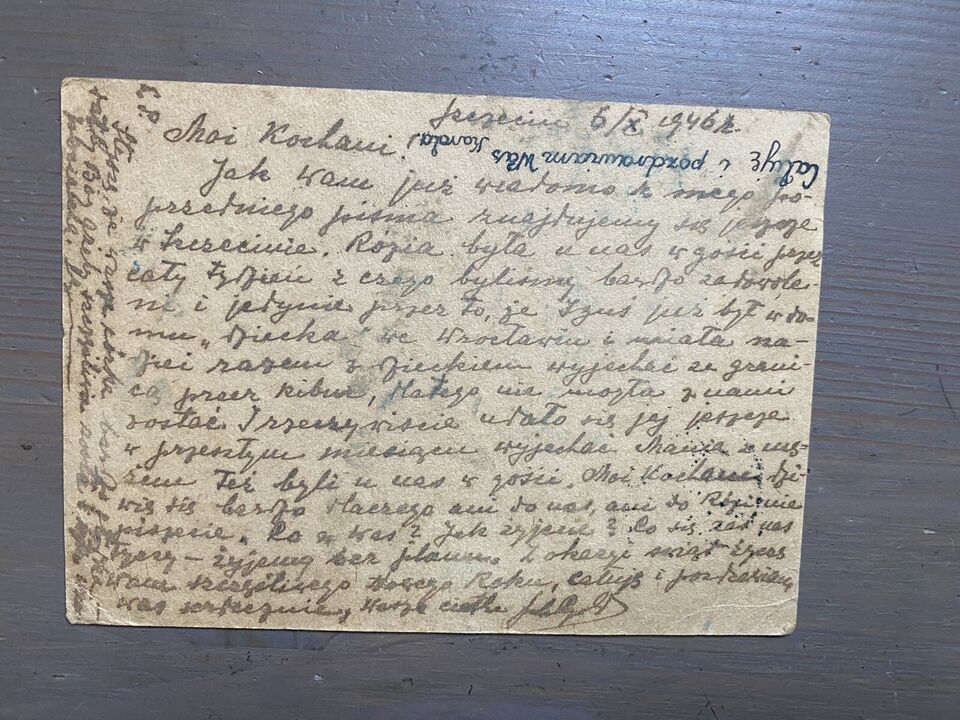 Szczecin 6/X 1946 r.
Moi Kochani!
Całuję i pozdrawiam Was Karola
Jak wam już wiadomo z mego po-
przedniego pisma znajdujemy się jeszcze
w Szczecinie. Rózia była u nas w gości przez
cały tydzień z czego byliśmy bardzo zadowole-
ni i jedynie przez to, że Izuś już był w do-
mu „Dziecka" we Wrocławiu i miała na-
dzieję razem z dzieckiem wyjechać za grani-
cą przez kibuc, dlatego nie mogła z nami
zostać. I rzeczywiście udało się jej jeszcze
w przeszłym miesiącu wyjechać. Mania z mę-
żem też byli u nas w gości. Moi Kochani dzi-
wię się bardzo dlaczego ani do nas, ani do Rózi nie
piszecie. Co u was? Jak żyjecie? Co się zaś nas
tyczy – żyjemy bez planu. Z okazji świąt życzę
wam szczęśliwego Nowego Roku, całuję i pozdrawiam
was serdecznie, wasza
żeby Bóg